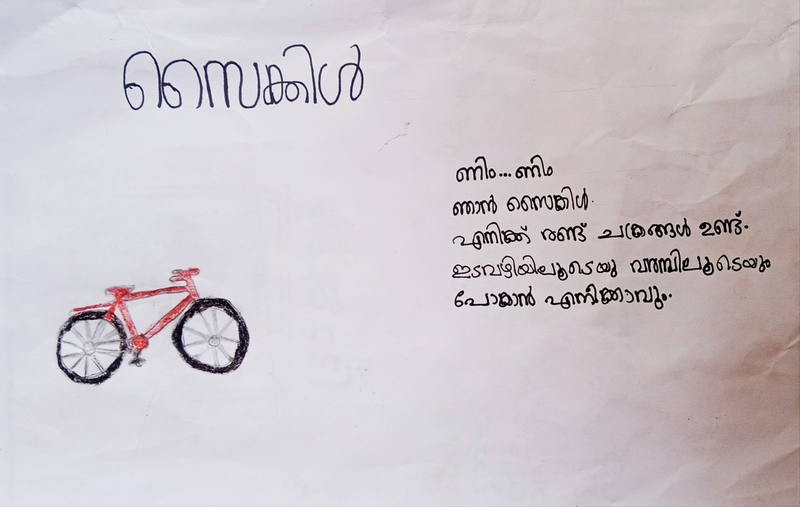 സൈക്കിൾ
ണിം...ണിം
ഞാൻ സൈക്കിൾ.
എനിക്ക് രണ്ട് ചക്രങ്ങൾ ഉണ്ട്.
ഇടവഴിയിലൂടെയു വരമ്പിലൂടെയും
പോകാൻ എനിക്കാവും.